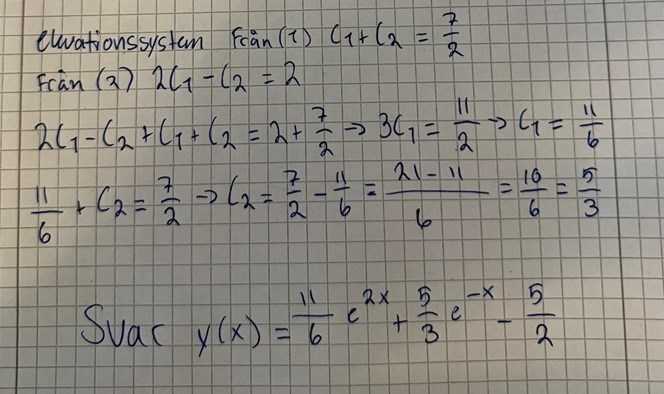 ekvationssystem Från (1) C₁ + C₂ = 7/2
Från (2) 2C₁ - C₂ = 2
2C₁ - C₂ + C₁ + C₂ = 2 + 7/2 → 3C₁ = 11/2 → C₁ = 11/6
11/6 + C₂ = 7/2 → C₂ = 7/2 - 11/6 = (21 - 11)/6 = 10/6 = 5/3
Svar y(x) = 11/6 e^(2x) + 5/3 e^(-x) - 5/2